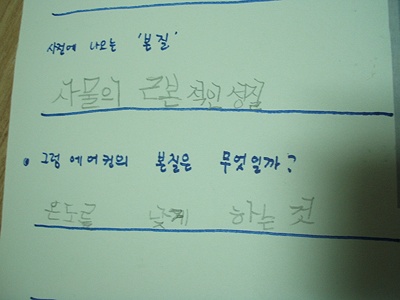 사전에 나오는 '본질'
사물의 근본적인 성질
• 그럼 에어컨의 본질은 무엇일까?
온도를 낮게 하는 것